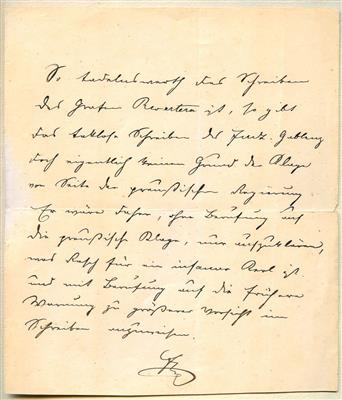 So tadelnswerth das Schreiben
des Grafen Revertera ist, so gibt
das taktlose Schreiben des Gablenz
doch eigentlich keinen Grund der Klage
von Seite der preußischen Regierung
Es wäre daher, ohne Berufung auf
die preußische Klage, nur aufzuklären,
was Rasch für ein infamer Kerl ist
und mit Berufung auf die frühere
Warnung zu größerer Vorsicht im
Schreiben anzuweisen.